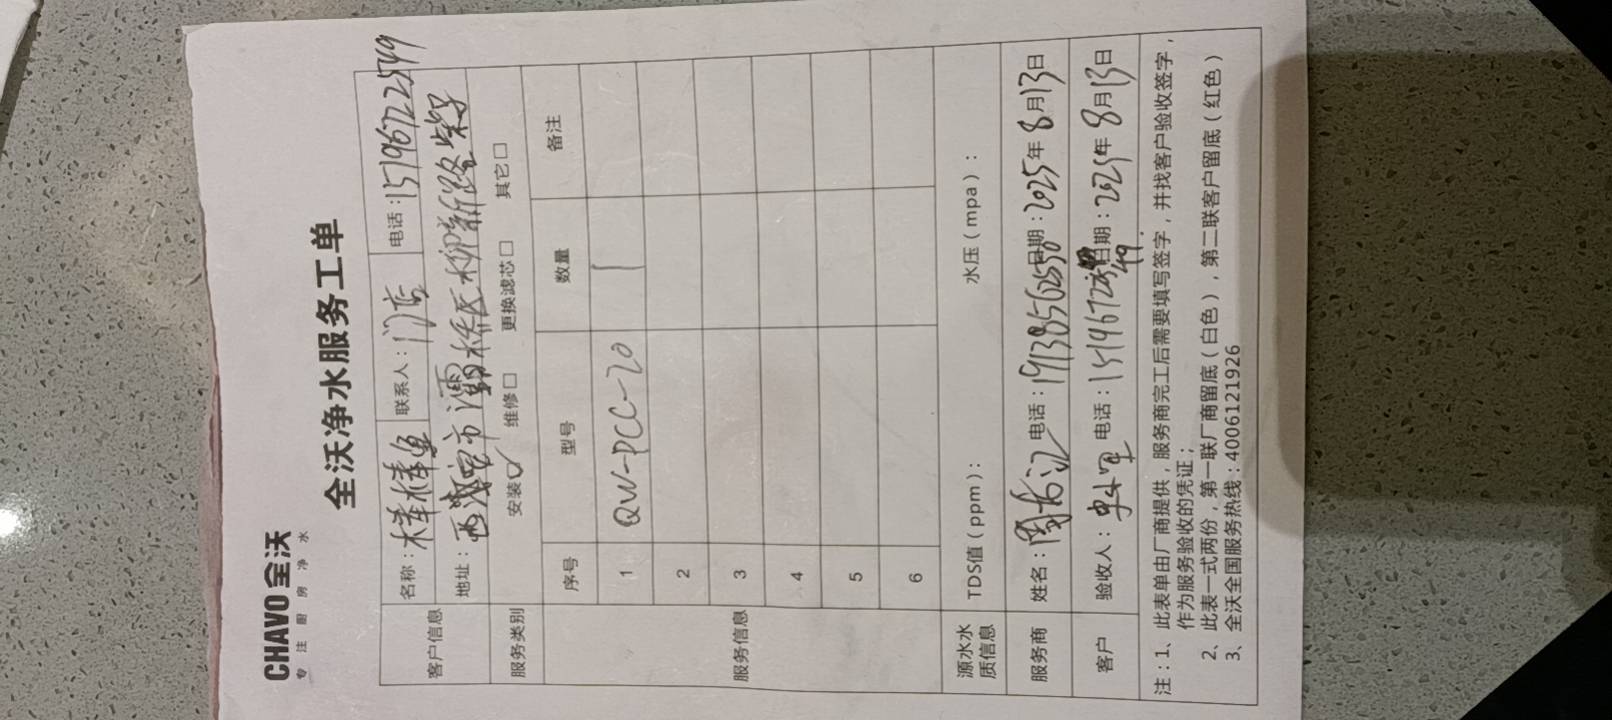 CHAVO 全沃
专注厨房净水
全沃净水服务工单
客户信息 名称：棒棒鱼 联系人：门店 电话：15196722549
地址：西 市灞桥区柳新路紫
服务类别 安装☑ 维修□ 更换滤芯□ 其它□
服务信息 序号 型号 数量 备注
1 QW-PCC-20 1
2
3
4
5
6
源水水质信息 TDS值（ppm）： 水压（mpa）：
服务商 姓名：周 电话：19138562550 日期：2025年8月13日
客户 验收人： 电话： 日期：2025年8月13日
注：1、此表单由厂商提供，服务商完工后需要填写签字，并找客户验收签字，
作为服务验收的凭证；
2、此表一式两份，第一联厂商留底（白色），第二联客户留底（红色）
3、全沃全国服务热线：4006121926